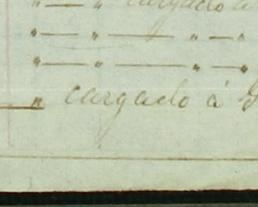 " — " cargado á
" — " — " — "
" — " — " — "
" cargado á